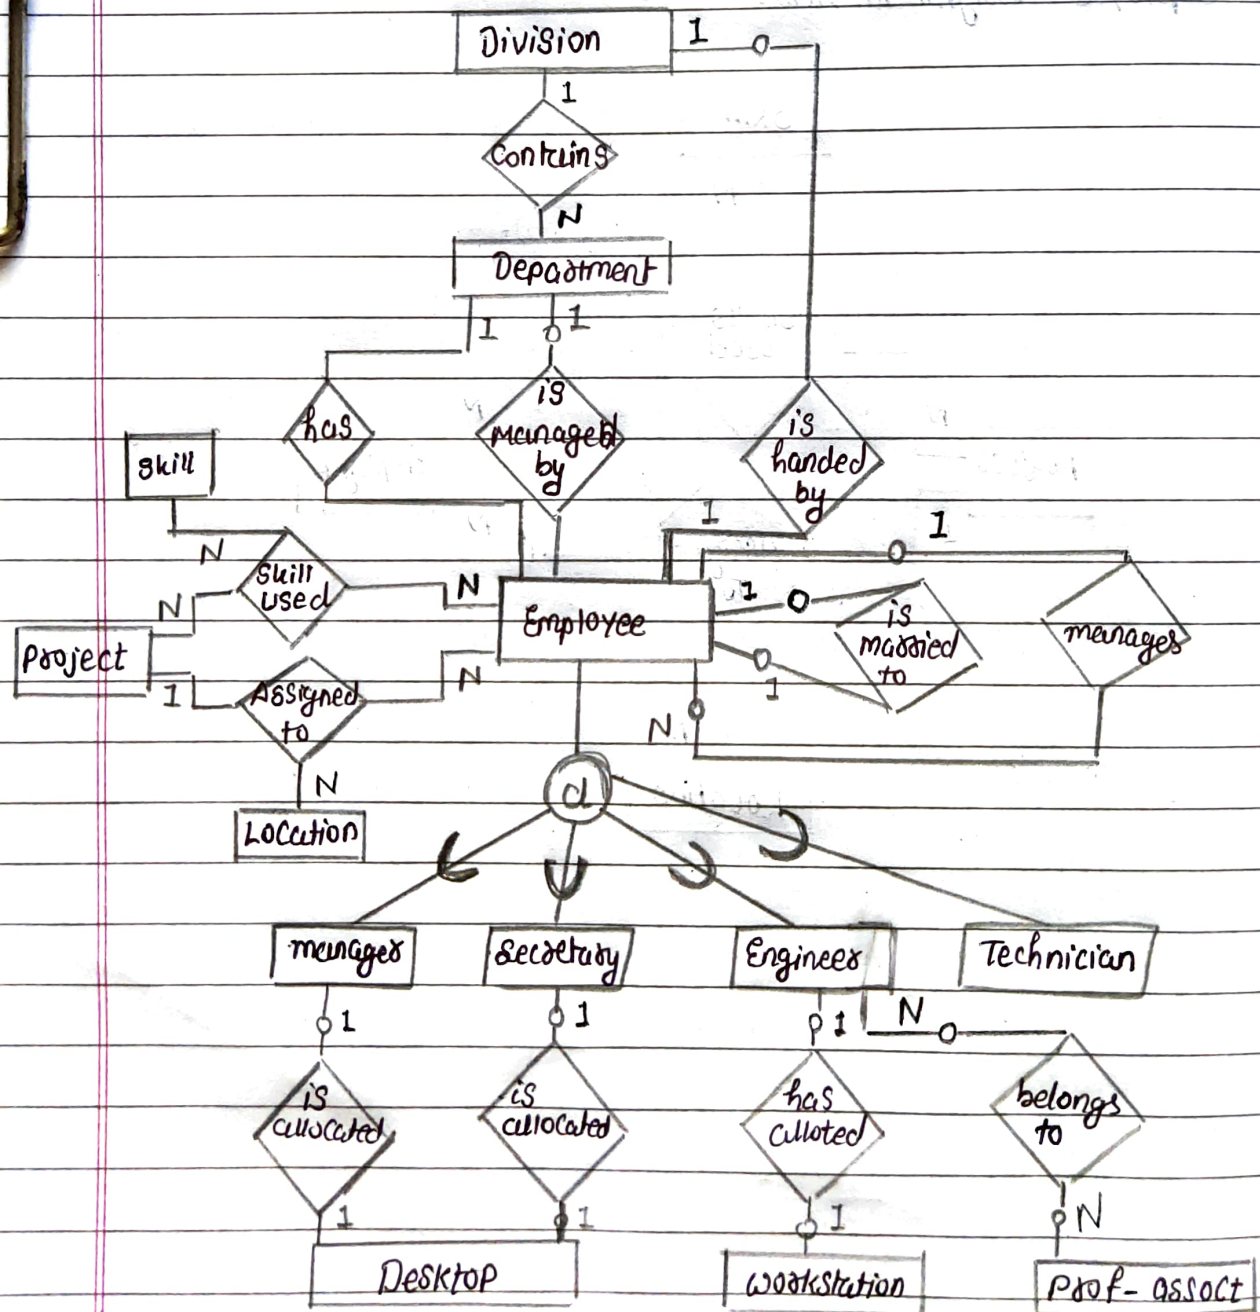 Division
1
1
contains
N
Department
1
1
has
is
managed
by
is
handed
by
skill
N
1
1
skill
used
N
N
Employee
1
is
married
to
1
manages
project
1
Assigned
to
N
N
N
Location
d
manager
secretary
Engineer
Technician
1
1
1
N
is
allocated
is
allocated
has
alloted
belongs
to
1
1
1
N
Desktop
workstation
prof-assoct